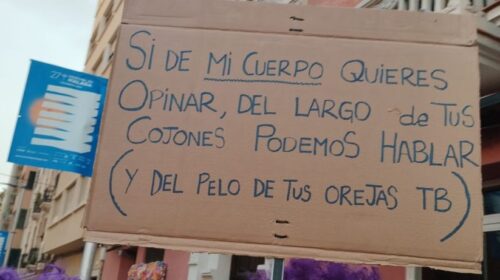 SI DE MI CUERPO QUIERES
OPINAR, DEL LARGO de TUS
COJONES PODEMOS HABLAR
(Y DEL PELO DE TUS OREJAS TB)
27